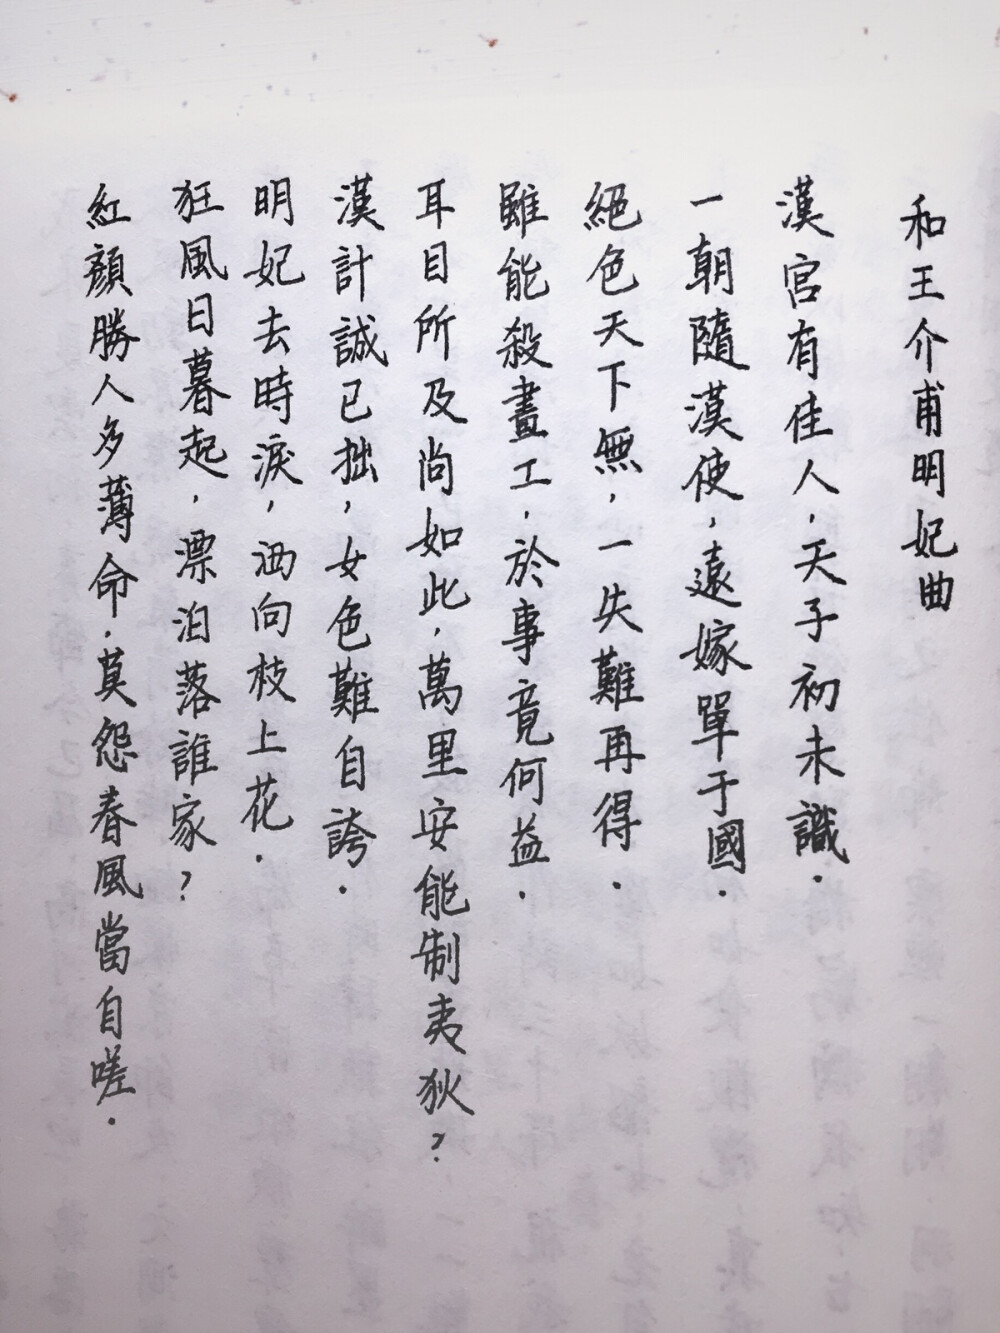 和王介甫明妃曲
漢宮有佳人,天子初未識.
一朝隨漢使,遠嫁單于國.
絕色天下無,一失難再得.
雖能殺畫工,於事竟何益.
耳目所及尚如此,萬里安能制夷狄?
漢計誠已拙,女色難自誇.
明妃去時淚,洒向枝上花.
狂風日暮起,漂泊落誰家?
紅顏勝人多薄命.莫怨春風當自嗟.